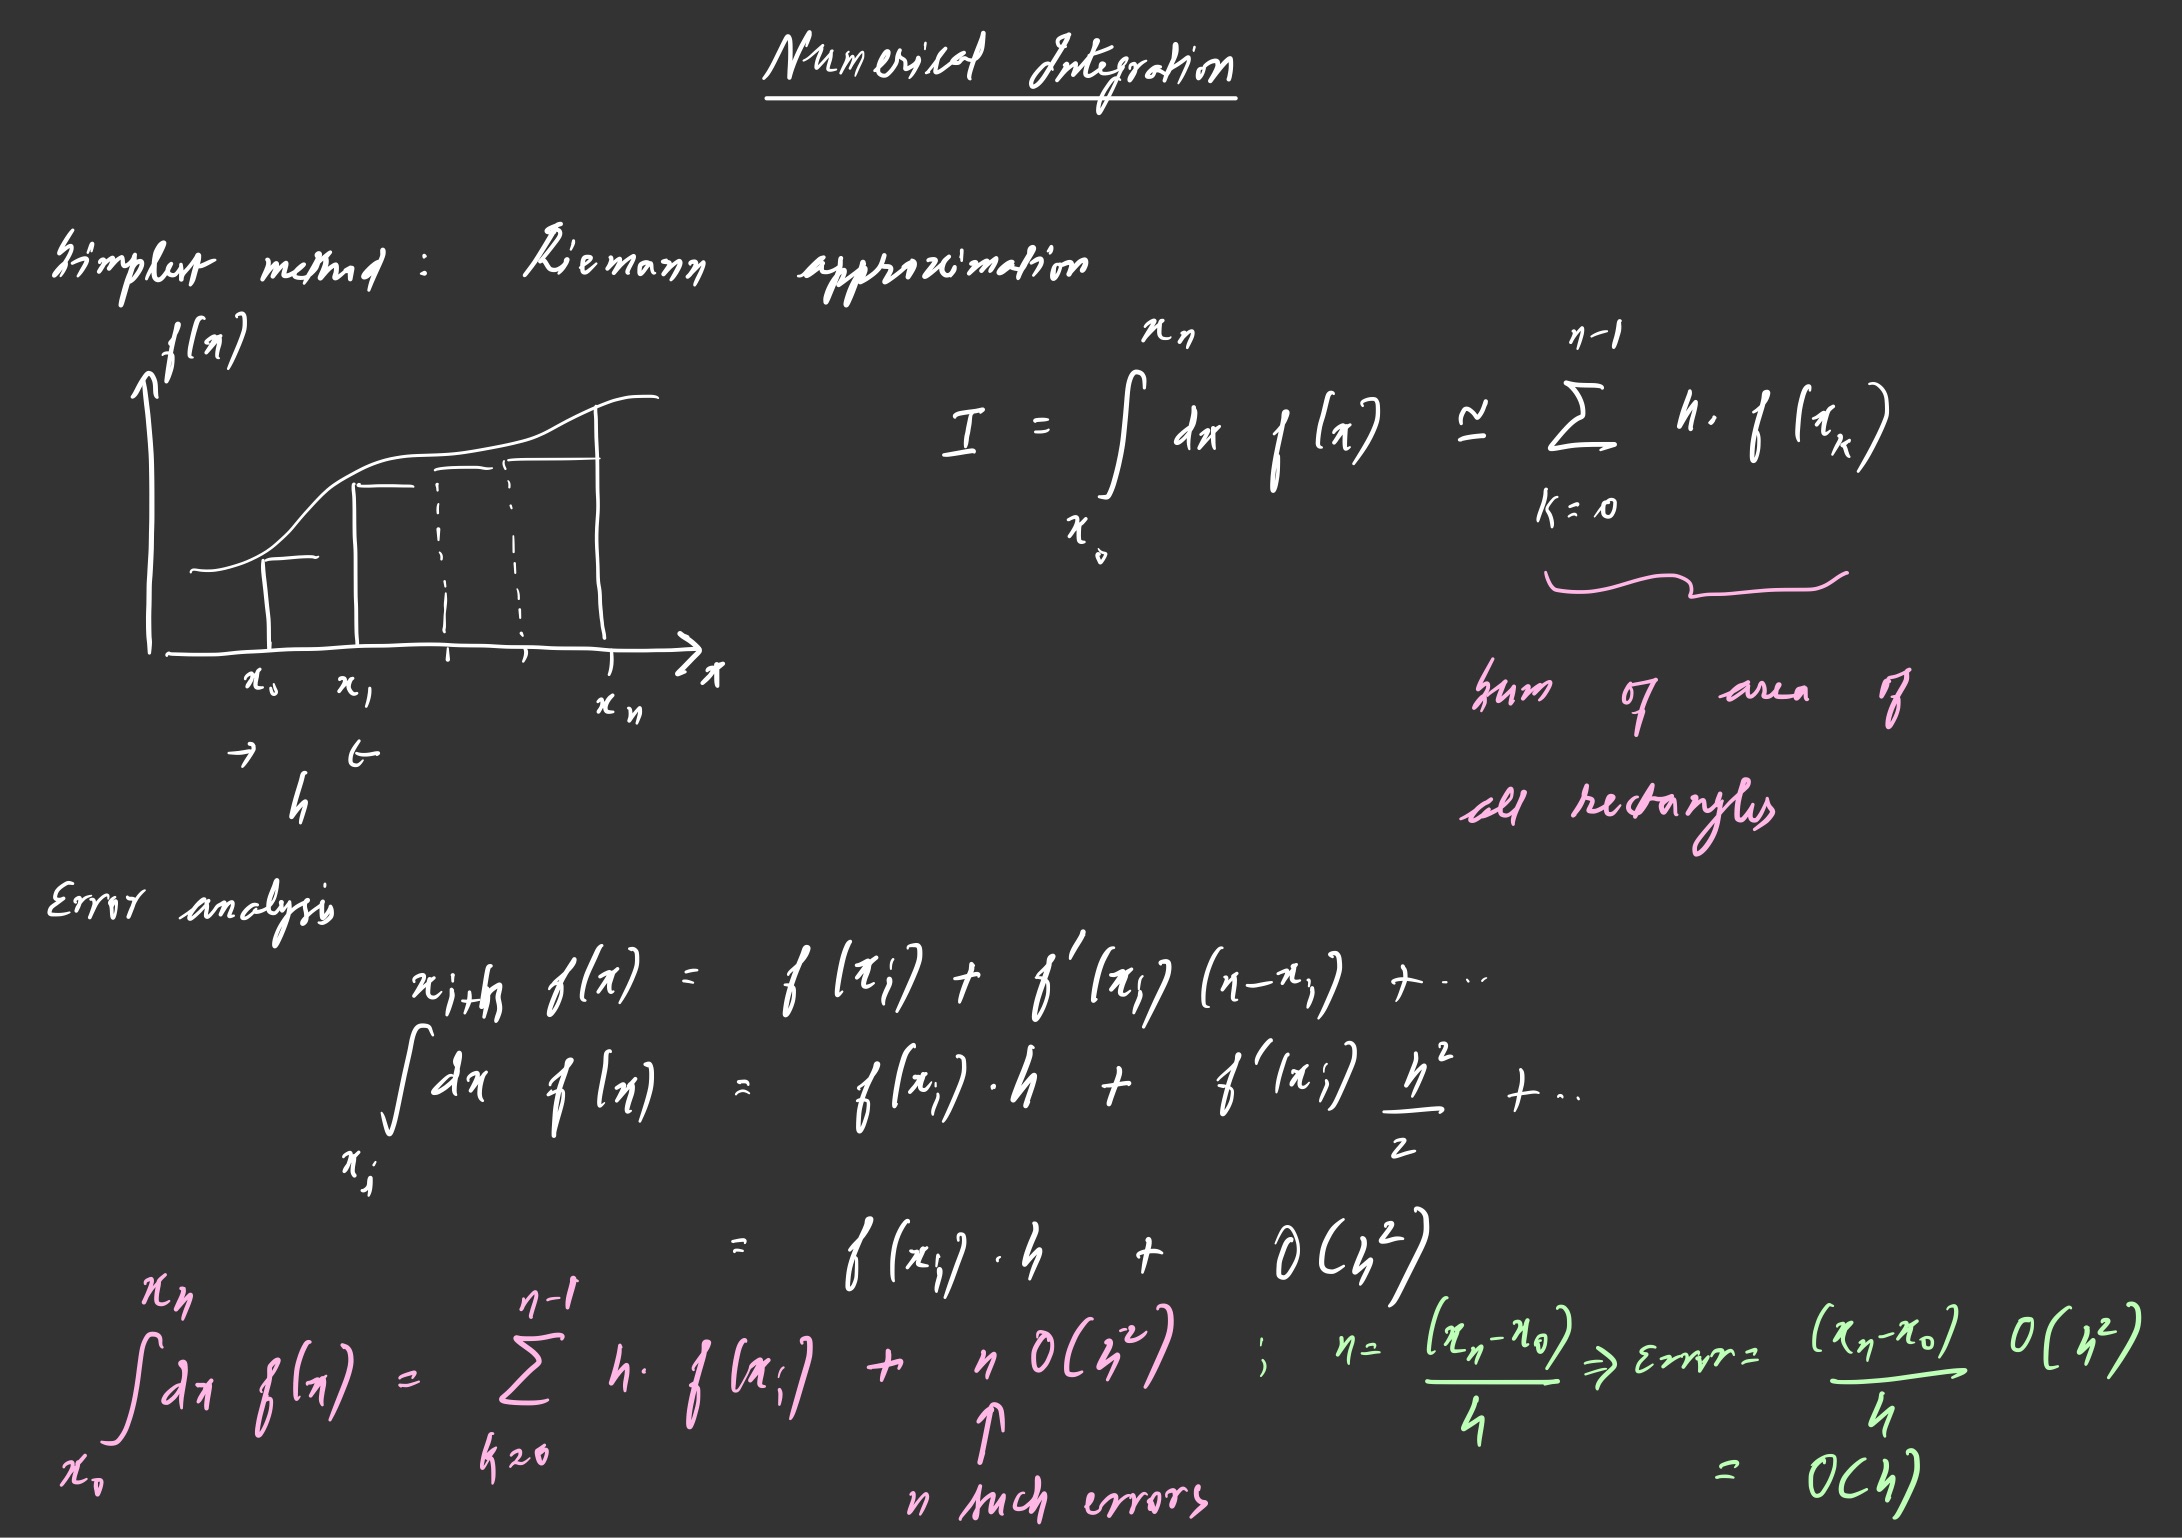 Numerical Integration
Simplest method : Riemann approximation
f(x)
I = ∫_{x_0}^{x_n} dx f(x) ≅ Σ_{k=0}^{n-1} h. f(x_k)
x_0 x_1 x_n x
→ h ←
sum of area of
all rectangles
Error analysis
f(x) = f(x_i) + f'(x_i) (x-x_i) + ...
∫_{x_i}^{x_{i+h}} dx f(x) = f(x_i) . h + f'(x_i) h²/2 + ..
= f(x_i) . h + O(h²)
∫_{x_0}^{x_n} dx f(x) = Σ_{k=0}^{n-1} h. f(x_i) + n O(h²) ; n = (x_n-x_0)/h ⇒ error = (x_n-x_0)/h O(h²)
↑
= O(h)
n such errors